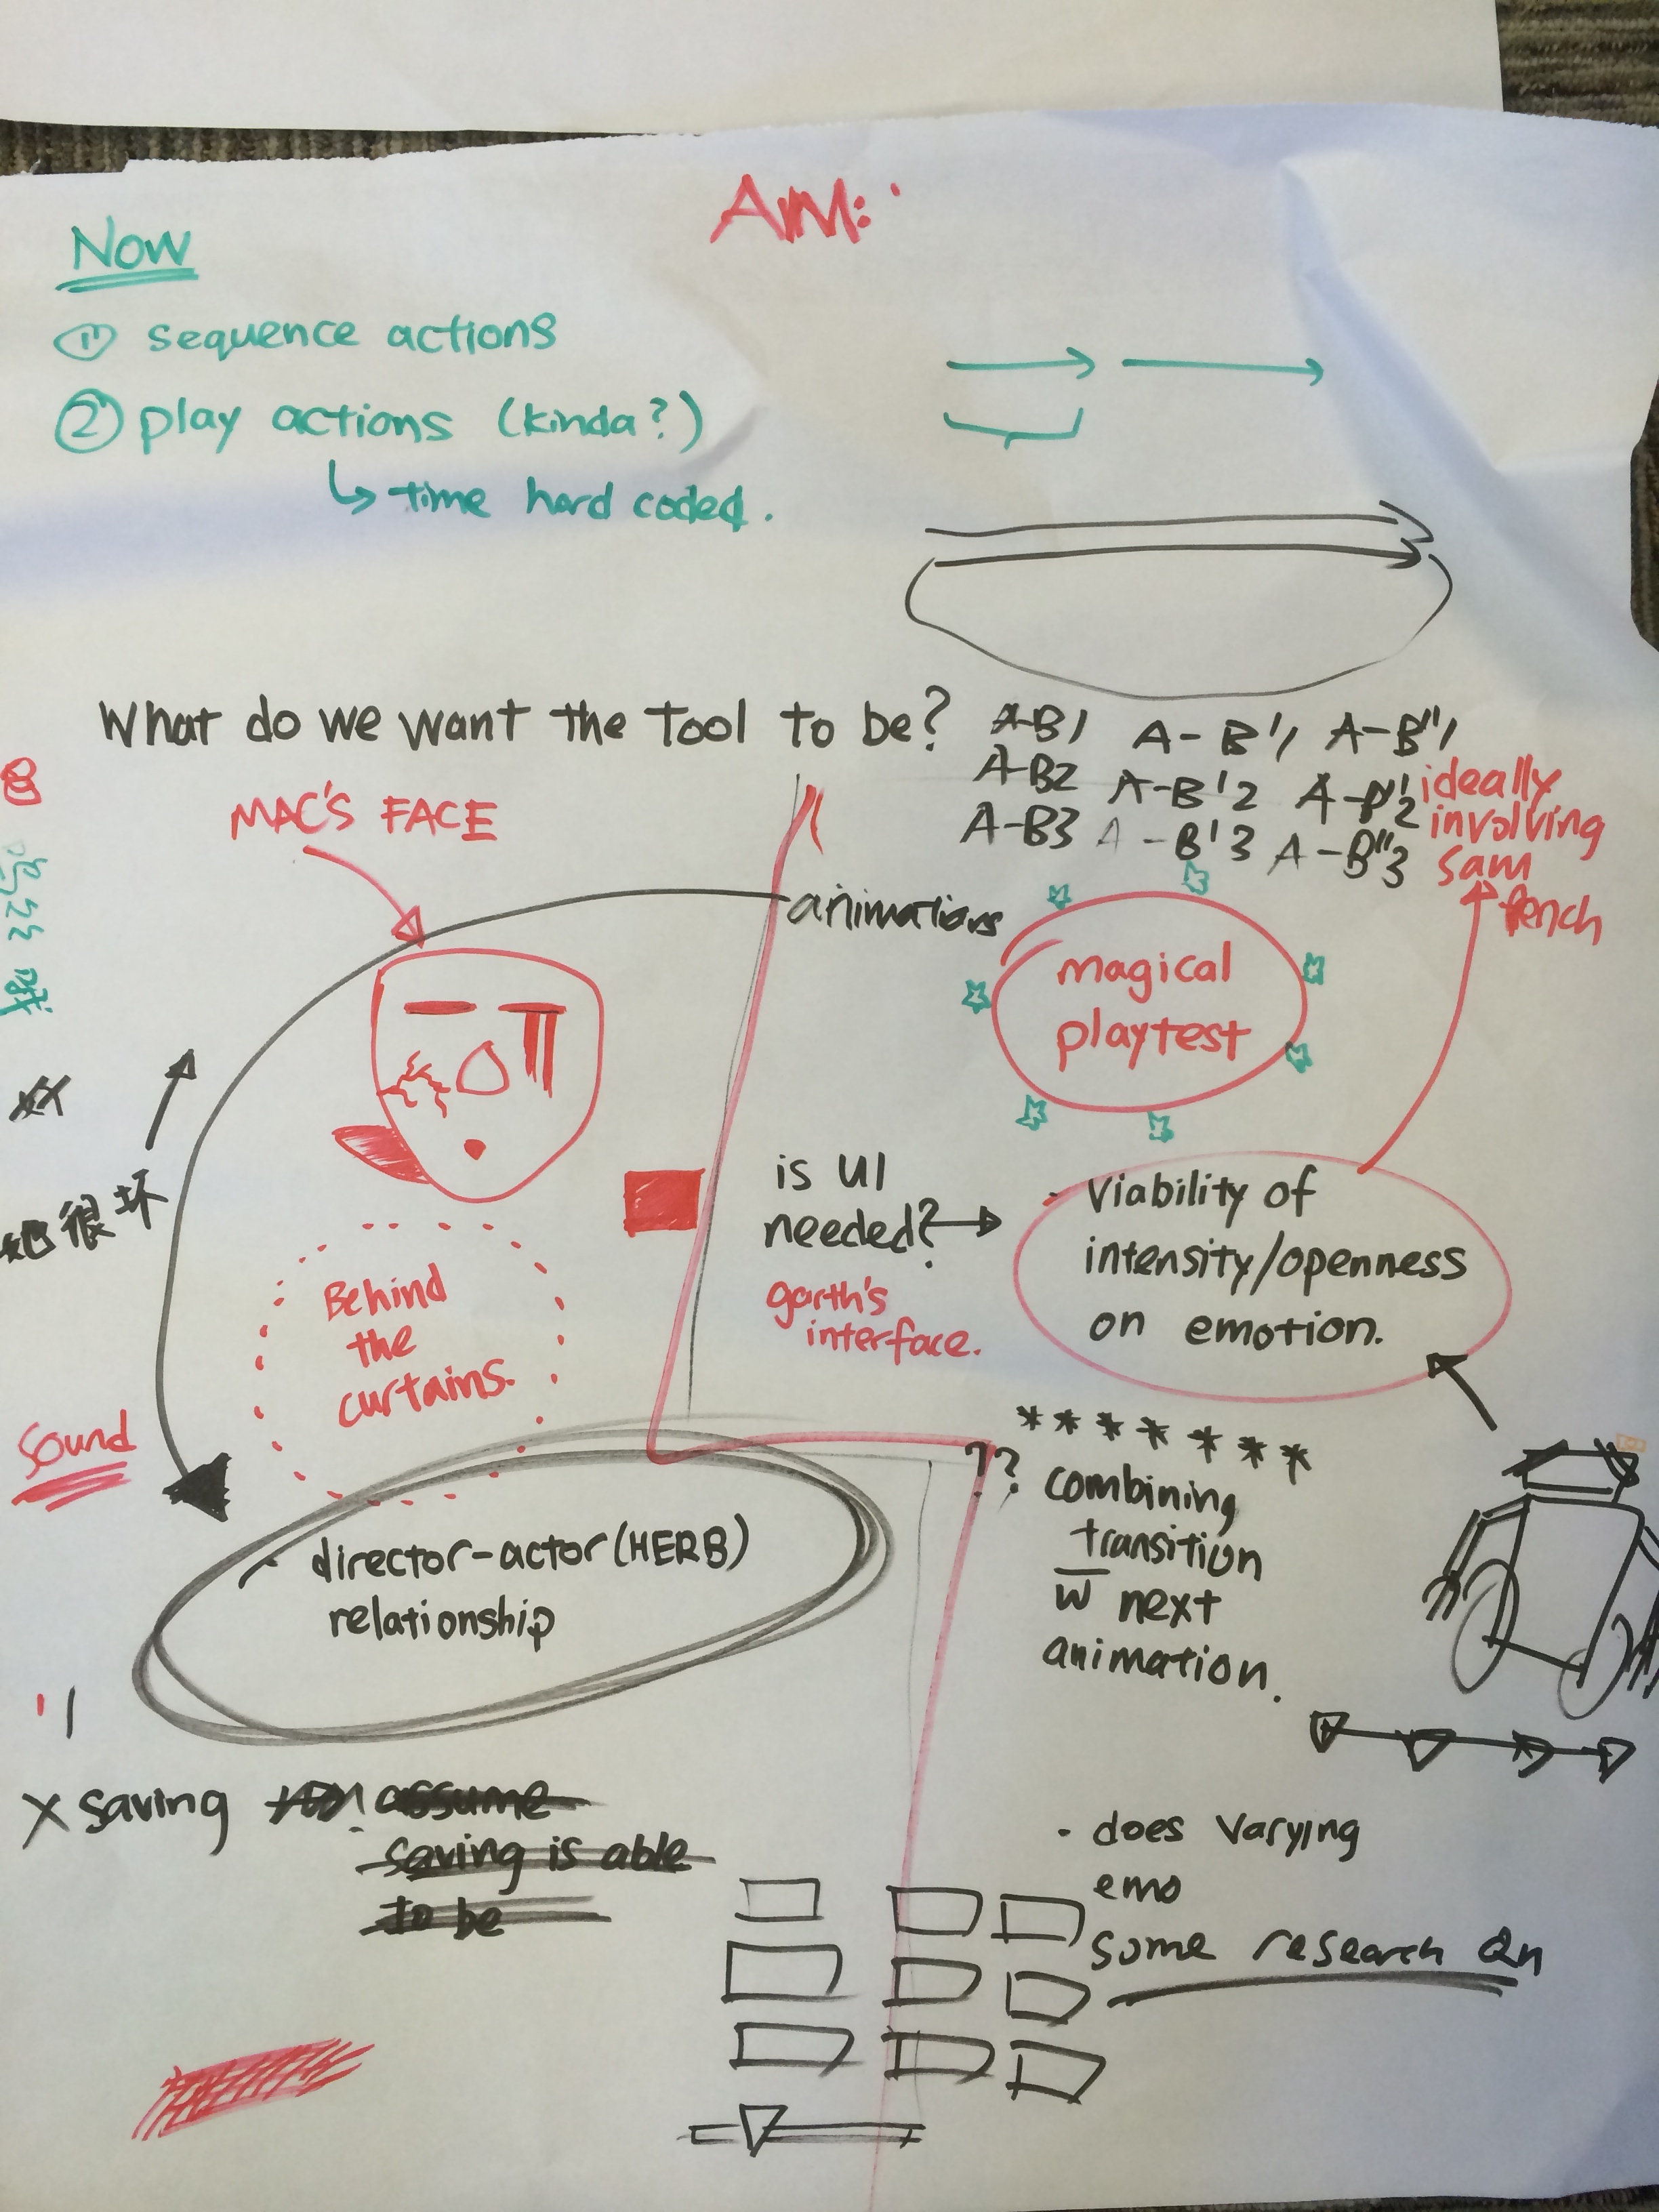 AIM:
Now
① sequence actions
② play actions (kinda?)
↳ time hard coded.
What do we want the tool to be?
A-B1 A-B'1 A-B"1
A-B2 A-B'2
A-B3 A-B'3 A-B"3
ideally
involving
sam
fench
MAC'S FACE
animations
magical
playtest
is UI
needed?
garth's
interface.
- Viability of
intensity/openness
on emotion.
很坏
Behind
the
curtains.
Sound
- director-actor (HERB)
relationship
* * * * * * *
?? combining
transition
w̅ next
animation.
X saving
assume
saving is able
to be
- does varying
emo
some research Qn